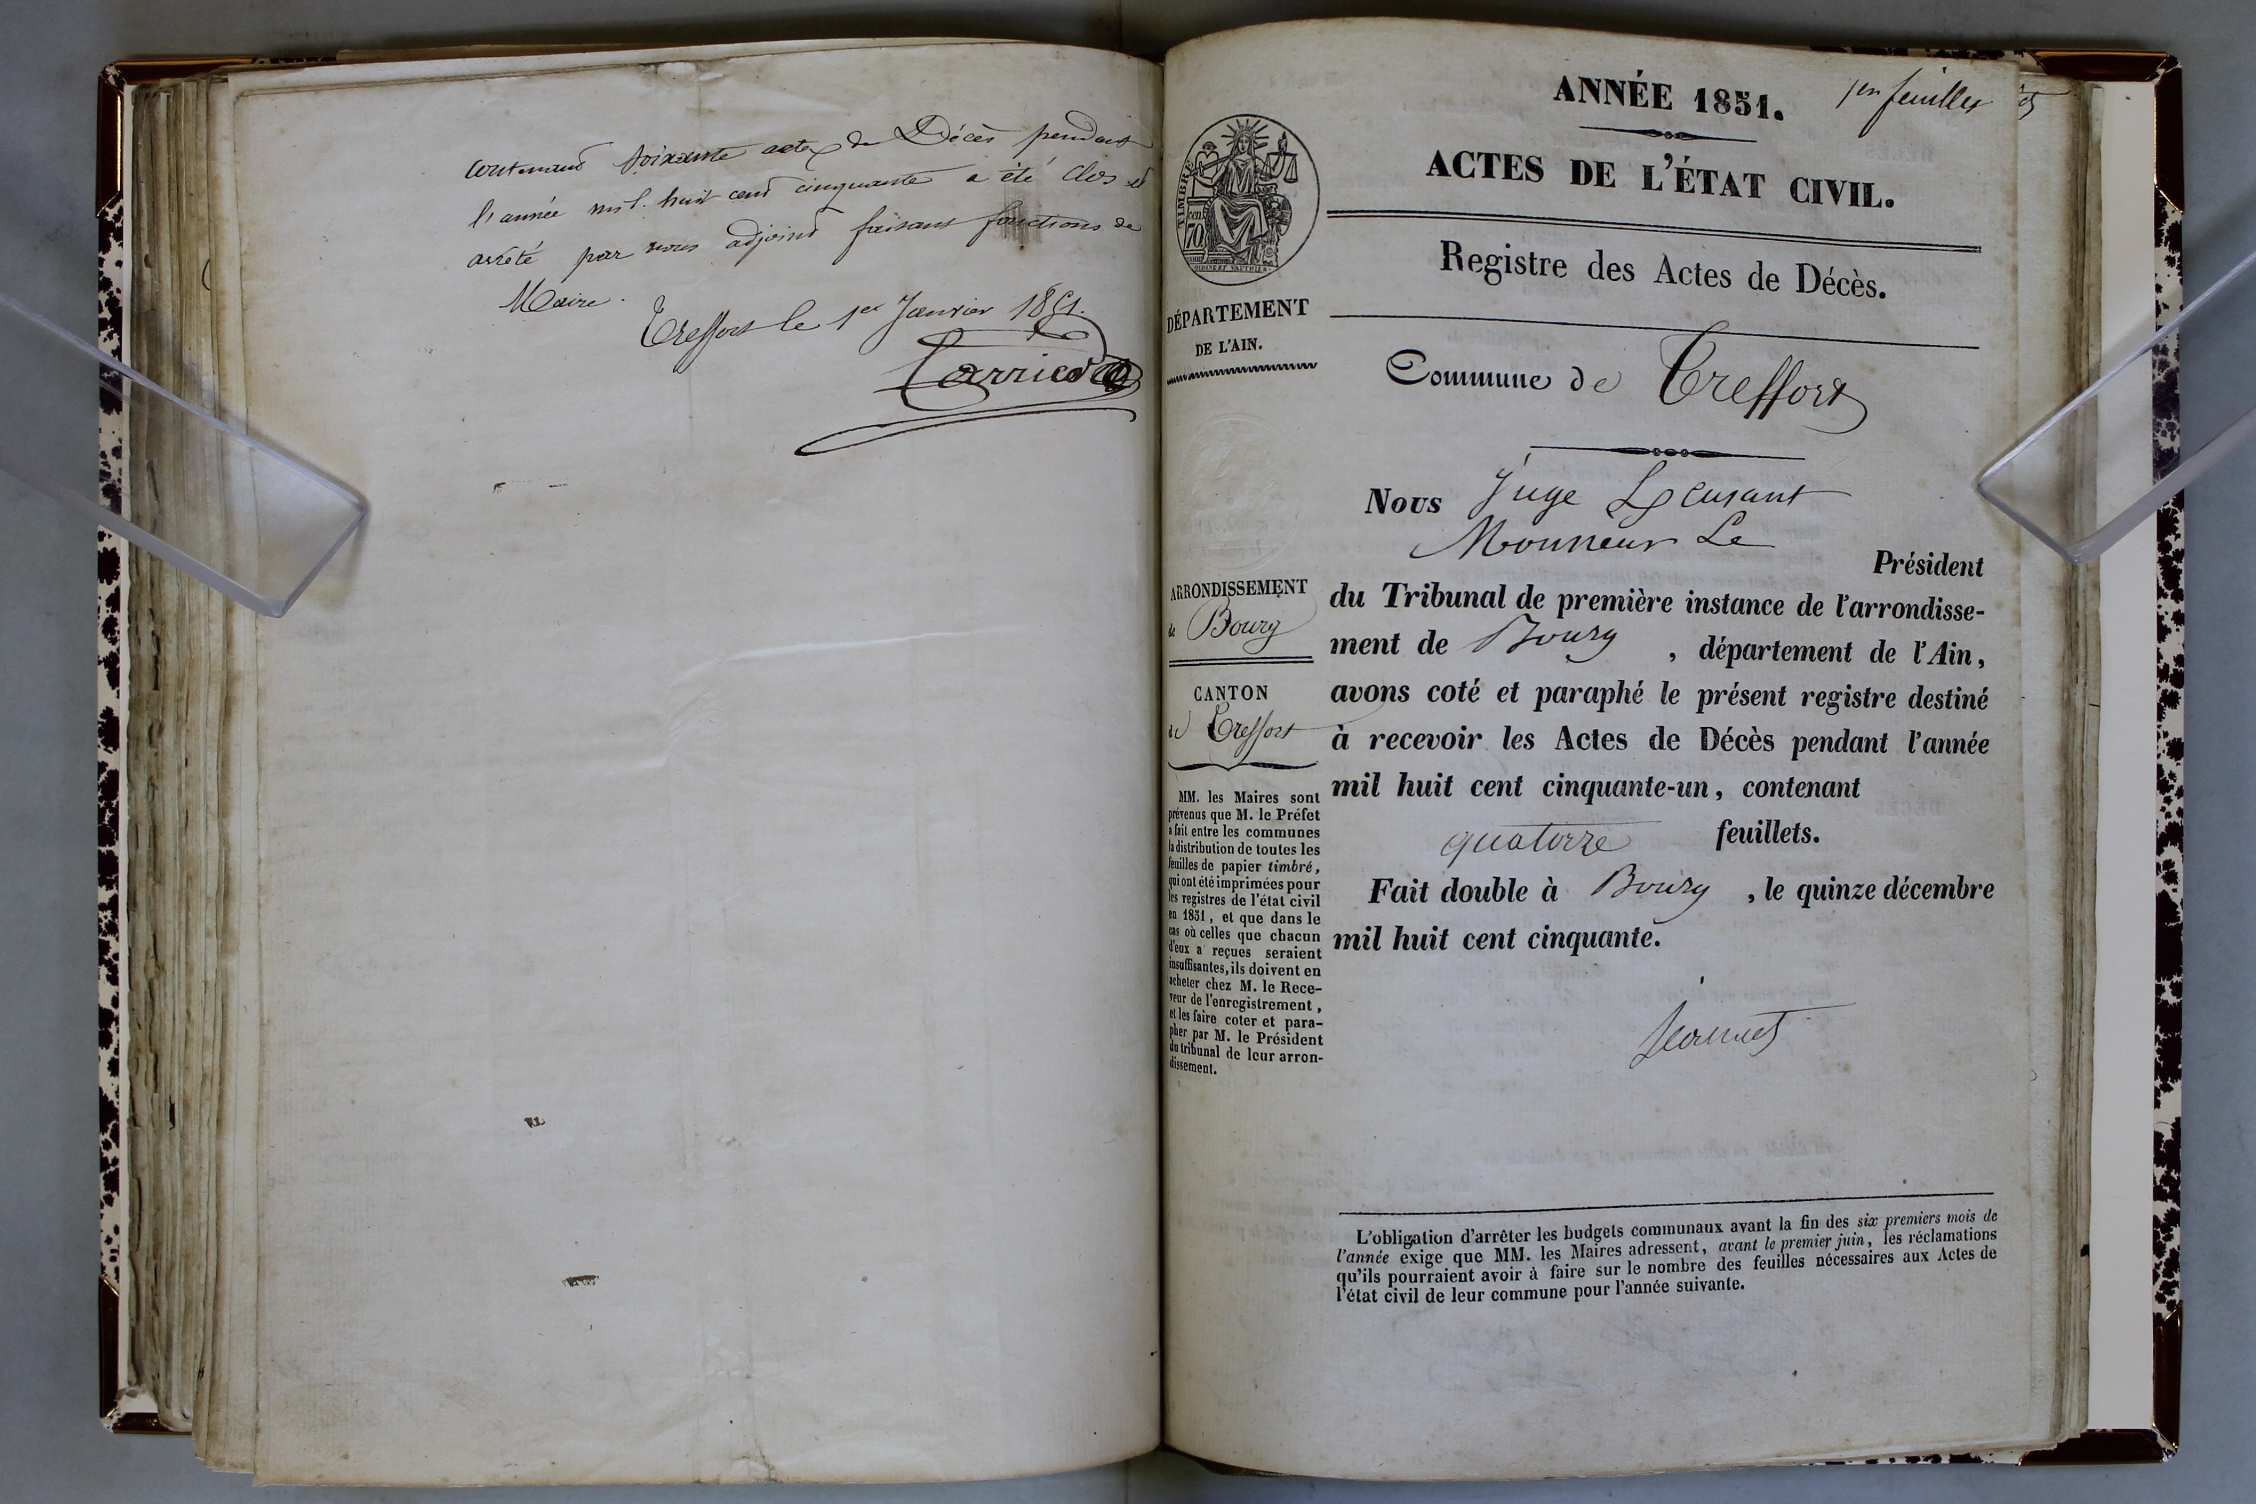 contenant soixante actes de Décès pendant
l'année mil huit cent cinquante a été clos et
arrêté par nous adjoint faisant fonctions de
Maire.
Treffort le 1er Janvier 1851.
ANNÉE 1851.
1er feuillet
ACTES DE L'ÉTAT CIVIL.
Registre des Actes de Décès.
TIMBRE
70
DÉPARTEMENT
DE L'AIN.
Commune de Treffort
Nous Juge
Monsieur Le
Président
du Tribunal de première instance de l'arrondisse-
ment de Bourg , département de l'Ain,
avons coté et paraphé le présent registre destiné
à recevoir les Actes de Décès pendant l'année
mil huit cent cinquante-un, contenant
quatorze feuillets.
Fait double à Bourg , le quinze décembre
mil huit cent cinquante.
ARRONDISSEMENT
de Bourg
CANTON
de Treffort
MM. les Maires sont
prévenus que M. le Préfet
a fait entre les communes
la distribution de toutes les
feuilles de papier timbré,
qui ont été imprimées pour
les registres de l'état civil
en 1851, et que dans le
cas où celles que chacun
d'eux a reçues seraient
insuffisantes, ils doivent en
acheter chez M. le Rece-
veur de l'enregistrement,
et les faire coter et para-
pher par M. le Président
du tribunal de leur arron-
dissement.
L'obligation d'arrêter les budgets communaux avant la fin des six premiers mois de
l'année exige que MM. les Maires adressent, avant le premier juin, les réclamations
qu'ils pourraient avoir à faire sur le nombre des feuilles nécessaires aux Actes de
l'état civil de leur commune pour l'année suivante.